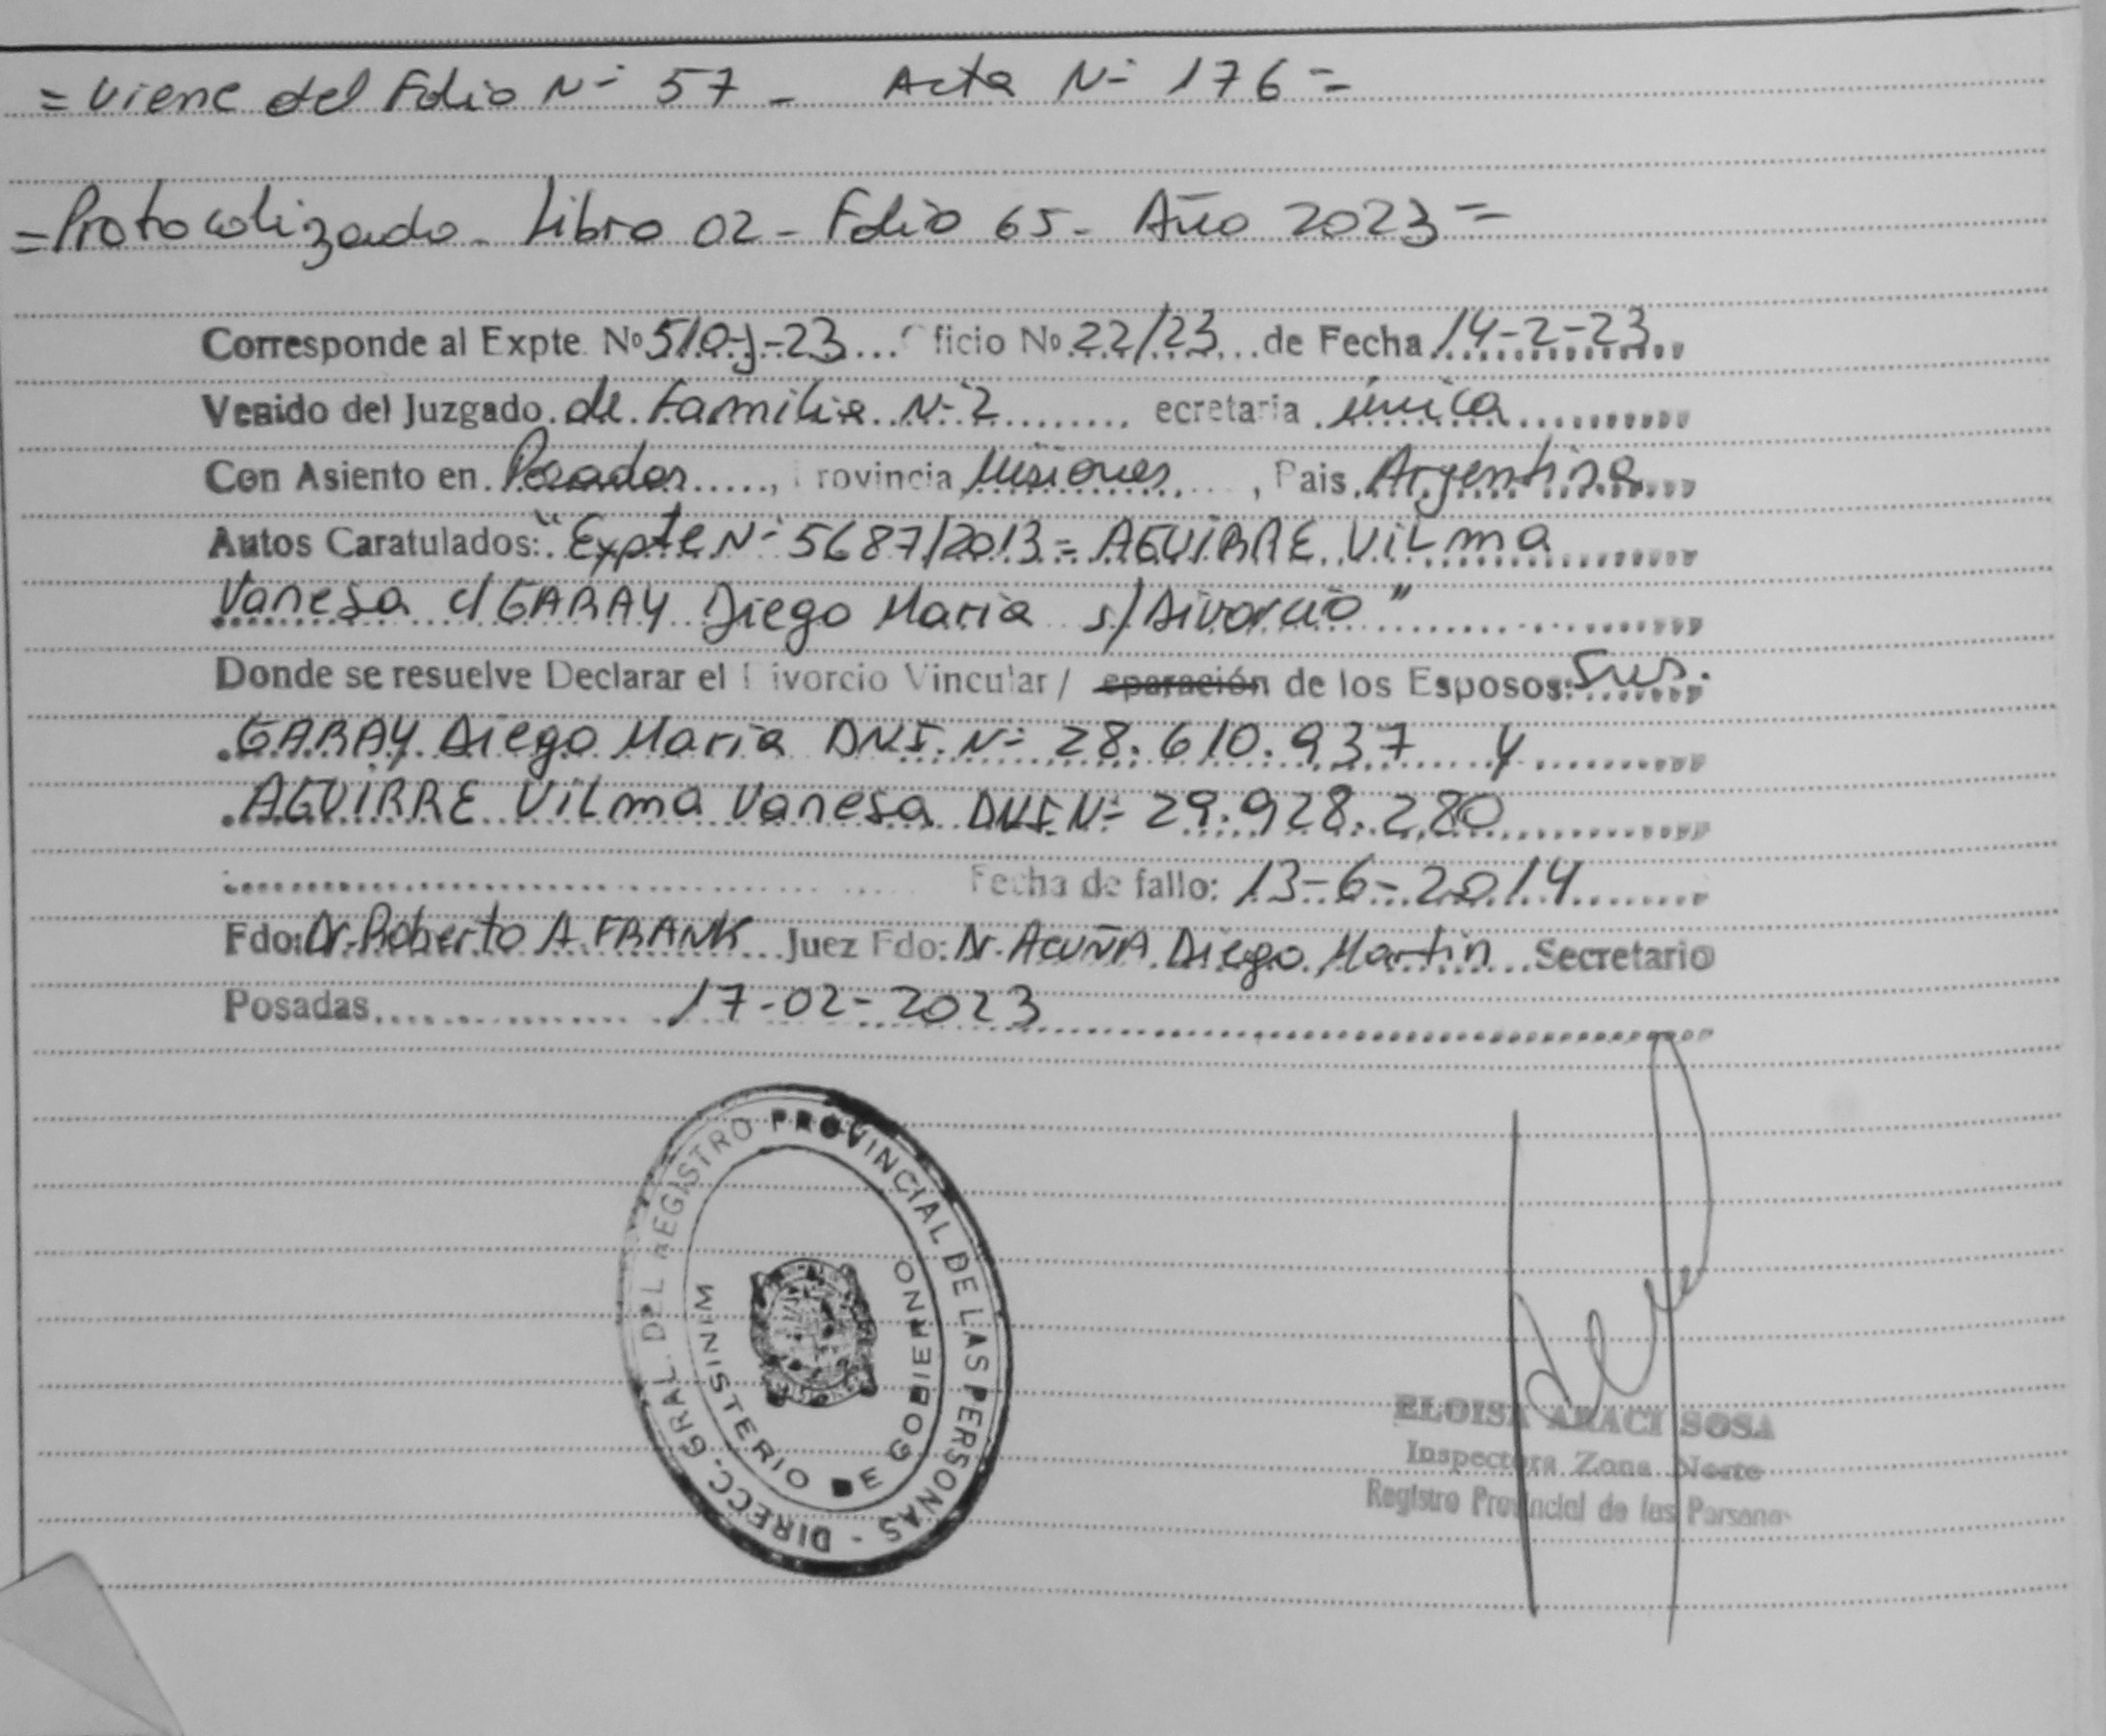 = Viene del Folio Nº 57 - Acta Nº 176 =
= Protocolizado - Libro 02 - Folio 65 - Año 2023 =
Corresponde al Expte. Nº 510-J-23... ficio Nº 22/23... de Fecha 14-2-23
Venido del Juzgado de Familia Nº 2........, ecretaria única
Con Asiento en Posadas....., rovincia Misiones....., Pais Argentina
Autos Caratulados: "Expte Nº 5687/2013 = AGUIRRE Vilma
Vanesa c/ GARAY Diego Maria s/ Divorcio"
Donde se resuelve Declarar el ivorcio Vincular / eparación de los Esposos: Sres.
GARAY Diego Maria DNI. Nº 28.610.937 y
AGUIRRE Vilma Vanesa DNI Nº 29.928.280
Fecha de fallo: 13-6-2014
Fdo: Dr. Roberto A. FRANK... Juez Fdo: Dr. ACUÑA Diego Martin... Secretario
Posadas................ 17-02-2023
DIRECC. GRAL. DEL REGISTRO PROVINCIAL DE LAS PERSONAS -
MINISTERIO DE GOBIERNO
ELOISA ARACI SOSA
Inspectora Zona Norte
Registro Provincial de las Personas